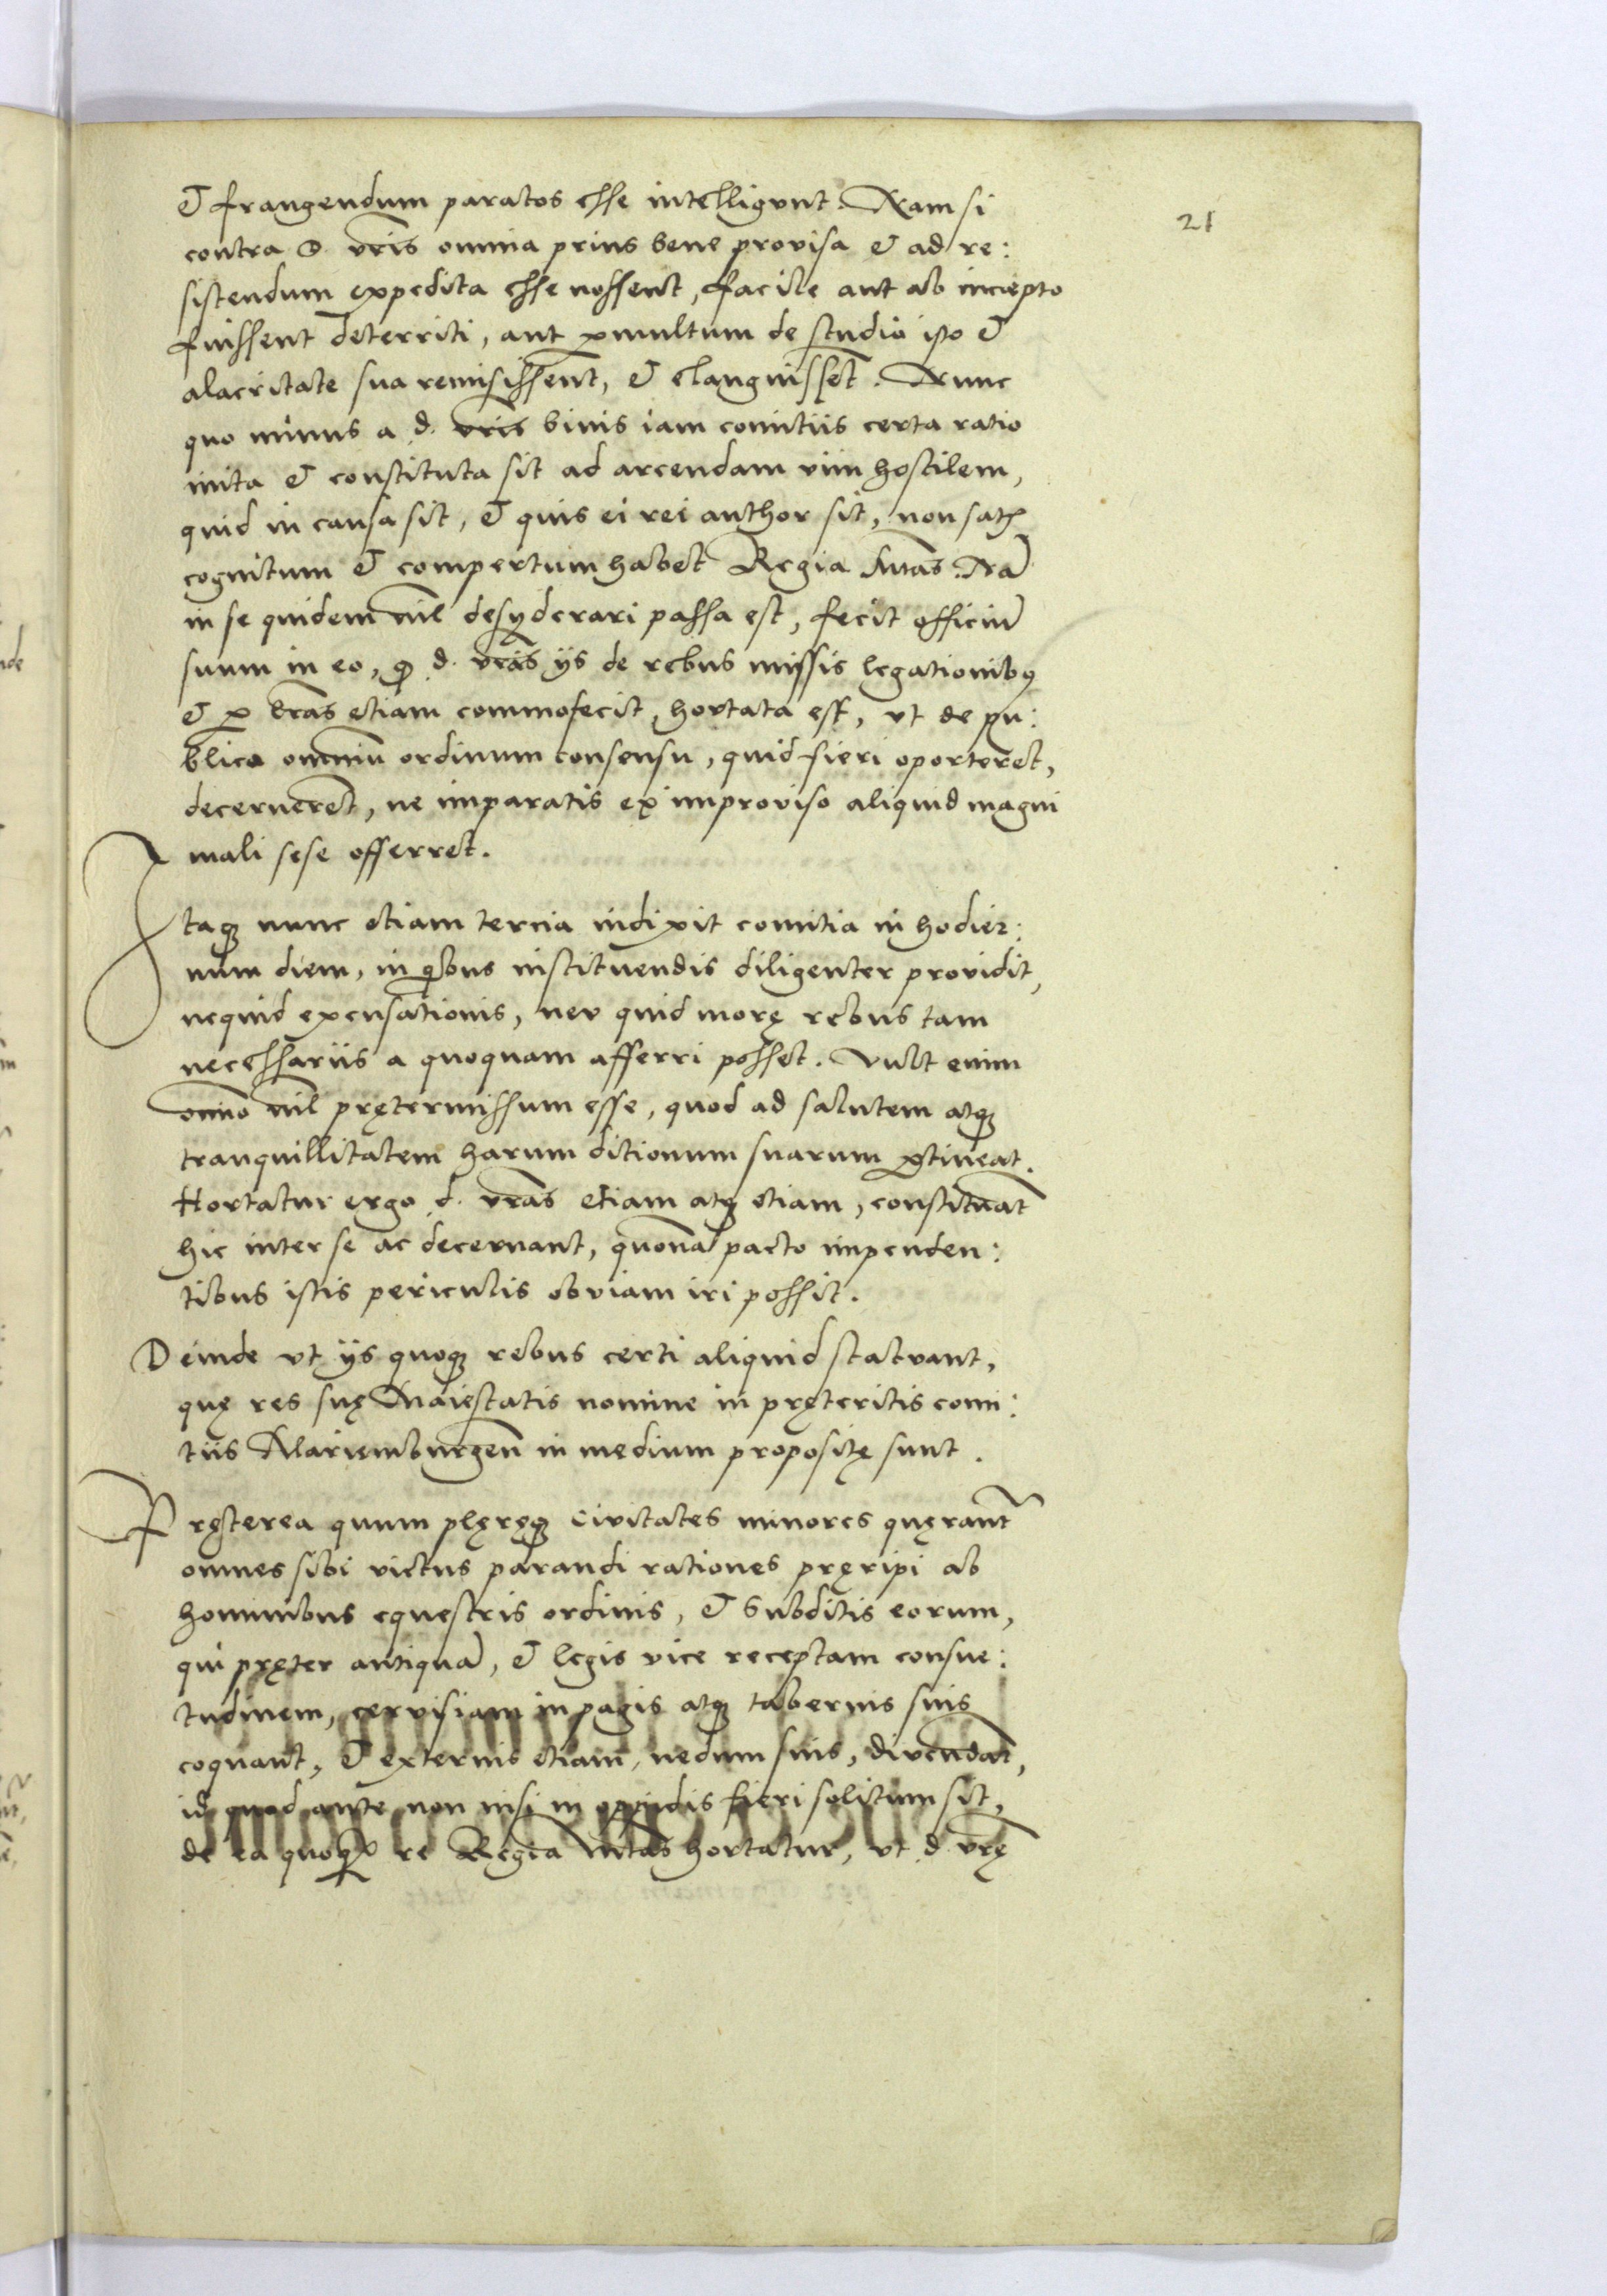 21
& frangendum paratos esse intelligunt. Nam si
contra D. vr̃is omnia prius bene provisa & ad re:
sistendum expedita esse nossent, facile aut ab incepto
fuissent deterriti, aut ꝑmultum de studio ip̃o &
alacritate sua remisissent, & elanguissẽt. Nunc
quo minus a d. vr̃is binis iam comitiis certa ratio
inita & constituta sit ad arcendam vim hostilem,
quid in causa sit, & quis ei rei author sit, non satꝭ
cognitum & compertum habet Regia M̃tas. Nã
in se quidem nil desyderari passa est, fecit officiũ
suum in eo, ꝙ d. vr̃as ijs de rebus missis legationibꝰ
& ꝑ lr̃as etiam commofecit, hortata est, vt de pu:
blico omniũ ordinum consensu, quid fieri oporteret,
decernerẽt, ne imparatis ex improviso aliquid magni
mali sese offerret.
Itaqꝫ nunc etiam tercia indixit comitia in hodier:
num diem, in qͥbus instituendis diligenter providit,
nequid excusationis, neu quid morę rebus tam
necessariis a quoquam afferri posset. Vult enim
om̃no nil prętermissum esse, quod ad salutem atqꝫ
tranquillitatem harum ditionum suarum ꝑtineat.
Hortatur ergo d. vr̃as etiam atqꝫ etiam, constituãt
hic inter se ac decernant, quonã pacto impenden:
tibus istis periculis obviam iri possit.
Deinde vt ijs quoqꝫ rebus certi aliquid statuant,
quę res suę Maiestatis nomine in pręteritis comi:
tiis Mariemburgeñ in medium propositę sunt.
Pręterea quum plęręqꝫ civitates minores quęrant̃
omnes sibi victus parandi rationes pręripi ab
hominibus equestris ordinis, & subditis eorum,
qui pręter antiquã, & legis vice receptam consue:
tudinem, cervisiam in pagis atqꝫ tabernis suis
coquant, & externis etiam, nedum suis, divendãt,
id quod ante non nisi in oppidis fieri solitum sit,
de ea quoqꝫ re Regia M̃tas hortatur, vt d. vr̃ę